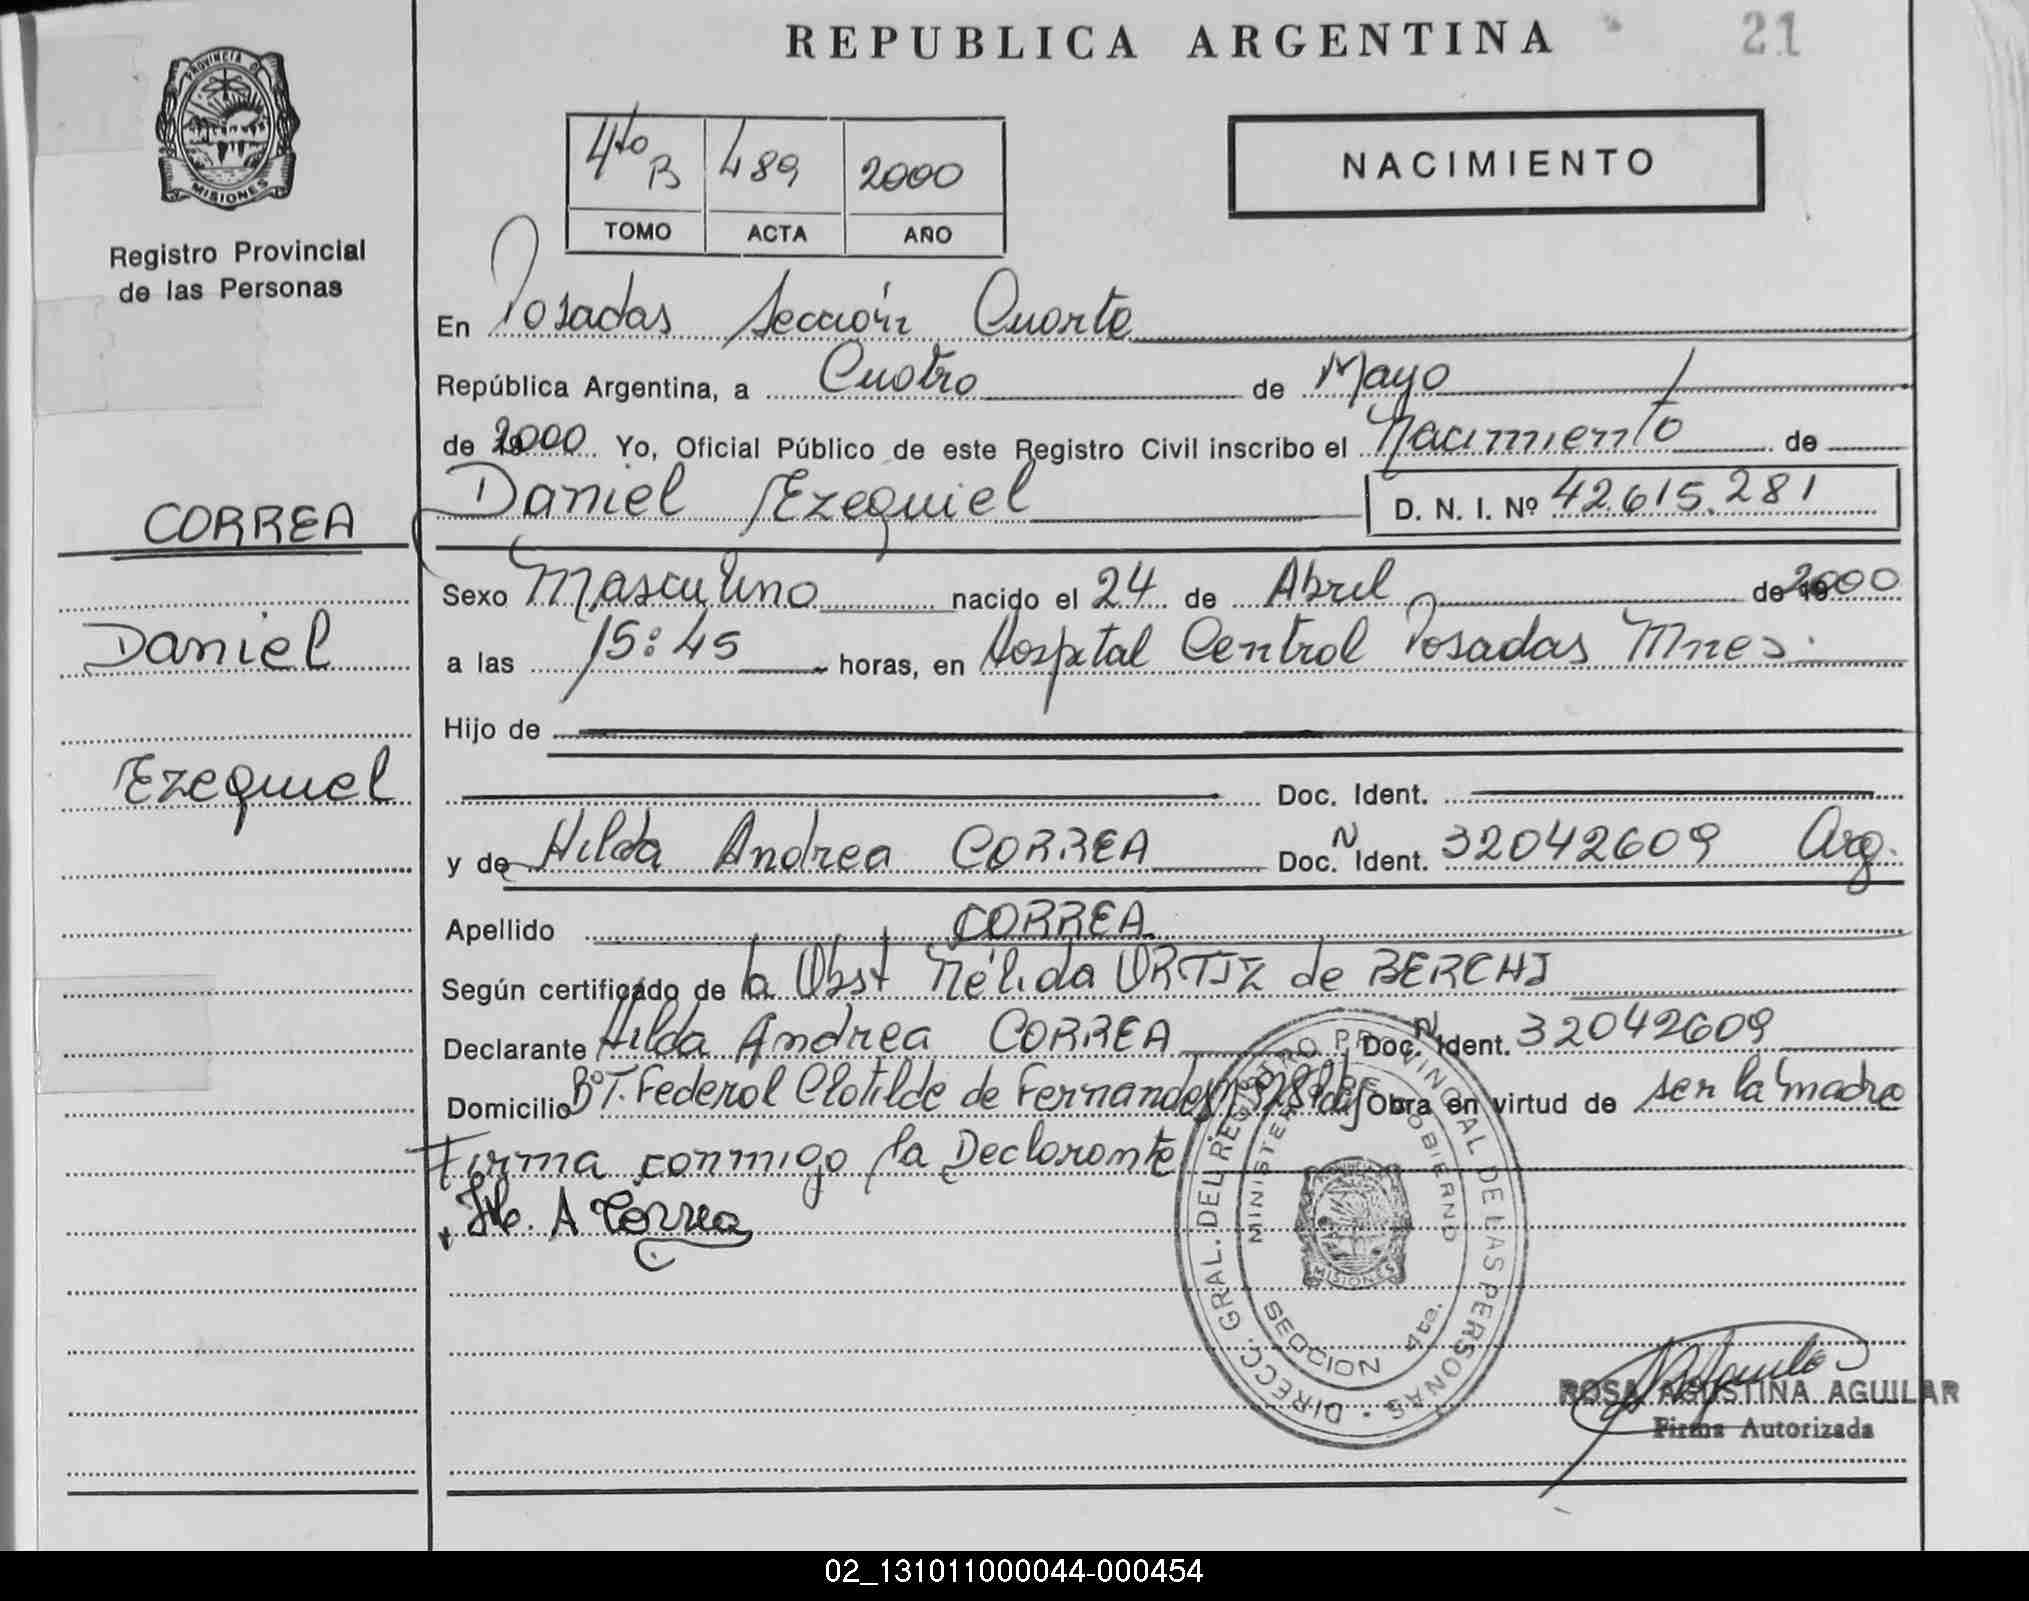 REPUBLICA ARGENTINA
21
PROVINCIA DE
MISIONES
Registro Provincial
de las Personas
4to B 489 2000
TOMO ACTA AÑO
NACIMIENTO
En Posadas Sección Cuarta
República Argentina, a Cuatro de Mayo
de 2000 Yo, Oficial Público de este Registro Civil inscribo el Nacimiento de
Daniel Ezequiel D. N. I. Nº 42.615.281
CORREA
Daniel
Ezequiel
Sexo Masculino nacido el 24 de Abril de 2000
a las 15:45 horas, en Hospital Central Posadas Mnes.
Hijo de
Doc. Ident.
y de Hilda Andrea CORREA Doc. N Ident. 32042609 Arg.
Apellido CORREA
Según certificado de la Obst Nélida ORTIZ de BERCHI
Declarante Hilda Andrea CORREA Doc. N Ident. 32042609
Domicilio Bº T. Federal Clotilde de Fernandez Obra en virtud de ser la madre
Firma conmigo la Declarante
A Correa
DIRECC. GRAL. DEL REGISTRO PROVINCIAL DE LAS PERSONAS
MINISTERIO DE GOBIERNO
MISIONES
SECCION 4ta.
ROSA AGUSTINA AGUILAR
Firma Autorizada
02_131011000044-000454